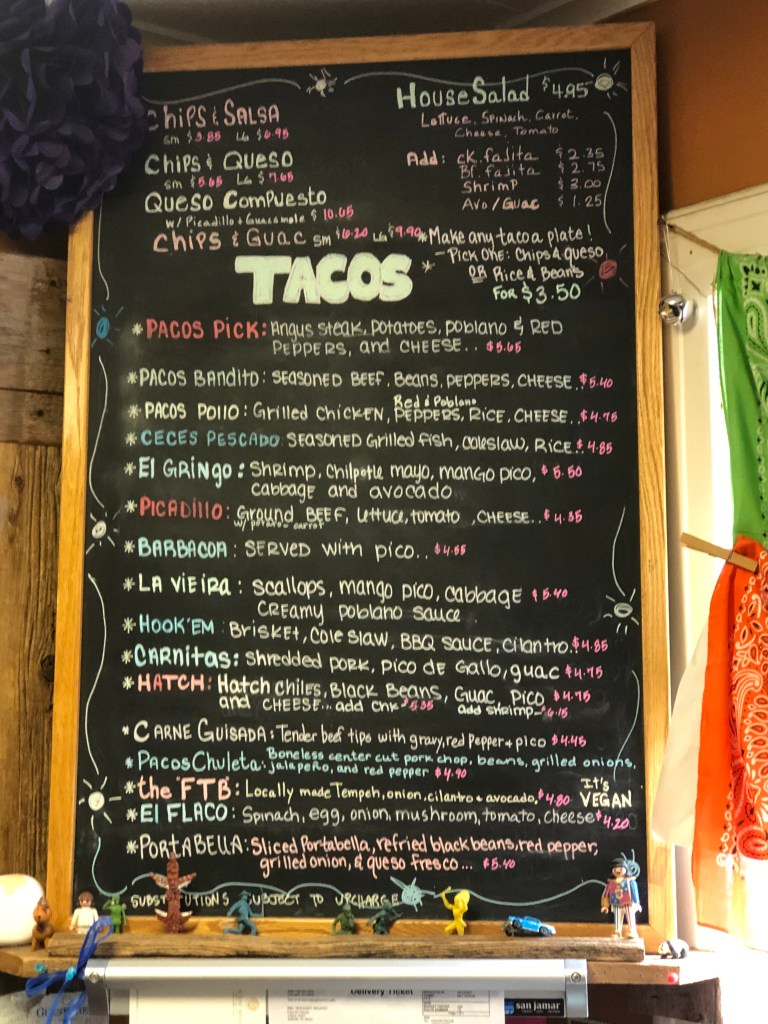 Chips & Salsa
sm $3.85 LG $6.95
Chips & Queso
sm $5.65 LG $7.65
Queso Compuesto
w/ Picadillo & Guacamole $10.65
Chips & Guac sm $6.20 LG $9.90
House Salad $4.95
Lettuce, Spinach, Carrot,
Cheese, Tomato
Add: ck. fajita $2.35
Bf. fajita $2.75
Shrimp $3.00
Avo/Guac $1.25
*Make any taco a plate!
- Pick One: Chips & queso
OR Rice & Beans
FOR $3.50
TACOS *
*PACOS PICK: Angus steak, potatoes, poblano & RED
PEPPERS, and CHEESE.. $5.65
*PACOS Bandito: SEASONED BEEF, Beans, PEPPERS, CHEESE. $5.40
Red & Poblano
*PACOS POllO: Grilled Chicken, PEPPERS, RICE, CHEESE.. $4.75
*CECES PESCADO: SEASONED Grilled fish, coleslaw, RICE. $4.85
*El GRINGO: Shrimp, Chilpotle mayo, mango pico, $5.50
cabbage and avocado
*PICADIllO: Ground BEEF, lettuce, tomato, CHEESE.. $4.35
w/ potato & carrot
*BARBACOA: SERVED with pico.. $4.55
*LA VIEIRA: Scallops, mango pico, cabbage $5.40
CREAMY poblano sauce
*HOOK'EM: BRISKET, Cole Slaw, BBQ SAUCE, cilantro. $4.85
*CARNITAS: Shredded PORK, PICO DE GAllO, guac $4.75
*HATCH: Hatch chiles, Black Beans, Guac, Pico $4.75
and CHEESE... add chk $5.35 add shrimp- $6.15
*CARNE GUISADA: Tender beef tips with gravy, red pepper & pico $4.45
*PACOS Chuleta: Boneless center cut pork chop, beans, grilled onions,
jalapeño, and red pepper $4.90
*the "FTB": Locally made Tempeh, onion, cilantro & avocado. $4.80 It's
VEGAN
*El FLACO: Spinach, egg, onion, mushroom, tomato, cheese $4.20
*PORTABELLA: Sliced Portabella, refried black beans, red pepper,
grilled onion, & queso fresco... $5.40
SUBSTITUTIONS SUBJECT TO UPCHARGE
Delivery Ticket
san jamar